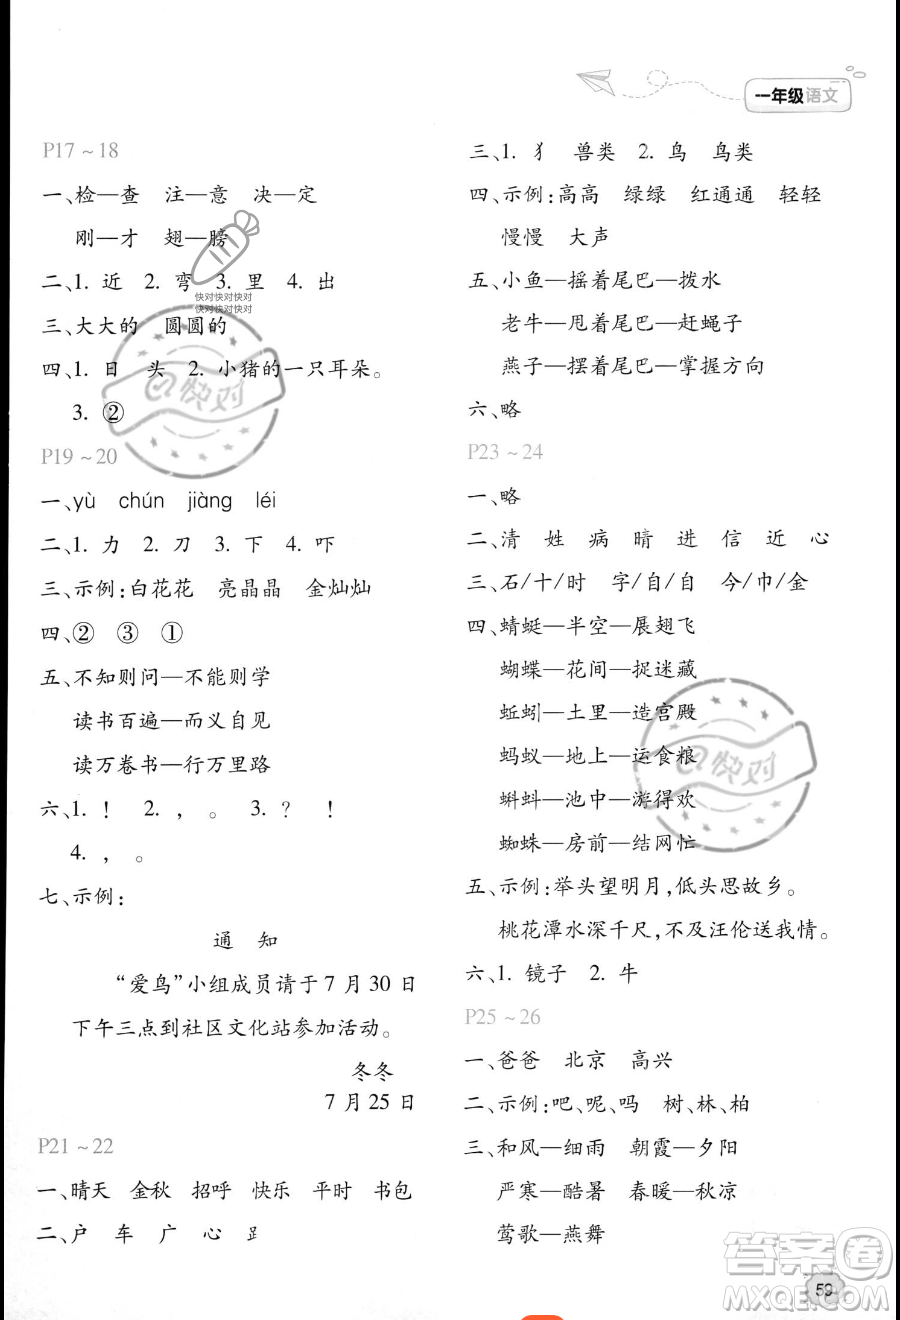 一年级语文
P17～18
一、检—查　注—意　决—定
刚—才　翅—膀
二、1. 近　2. 弯　3. 里　4. 出
三、大大的　圆圆的
四、1. 日　头　2. 小猪的一只耳朵。
3. ②
P19～20
一、yù　chún　jiàng　léi
二、1. 力　2. 刀　3. 下　4. 吓
三、示例:白花花　亮晶晶　金灿灿
四、②　③　①
五、不知则问—不能则学
读书百遍—而义自见
读万卷书—行万里路
六、1. ！　2. ，　。　3. ？　！
4. ，　。
七、示例:
通　知
“爱鸟”小组成员请于7月30日
下午三点到社区文化站参加活动。
冬冬
7月25日
P21～22
一、晴天　金秋　招呼　快乐　平时　书包
二、户　车　广　心　𧾷
三、1. 犭　兽类　2. 鸟　鸟类
四、示例:高高　绿绿　红通通　轻轻
慢慢　大声
五、小鱼—摇着尾巴—拨水
老牛—甩着尾巴—赶蝇子
燕子—摆着尾巴—掌握方向
六、略
P23～24
一、略
二、清　姓　病　晴　进　信　近　心
三、石/十/时　字/自/自　今/巾/金
四、蜻蜓—半空—展翅飞
蝴蝶—花间—捉迷藏
蚯蚓—土里—造宫殿
蚂蚁—地上—运食粮
蝌蚪—池中—游得欢
蜘蛛—房前—结网忙
五、示例:举头望明月,低头思故乡。
桃花潭水深千尺,不及汪伦送我情。
六、1. 镜子　2. 牛
P25～26
一、爸爸　北京　高兴
二、示例:吧、呢、吗　树、林、柏
三、和风—细雨　朝霞—夕阳
严寒—酷暑　春暖—秋凉
莺歌—燕舞
59
快对快对快对
快对快对快对
快对
快对
答案圈
MXQE.COM